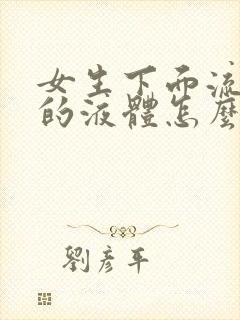 女生下面流
的液體怎麼
劉彥平